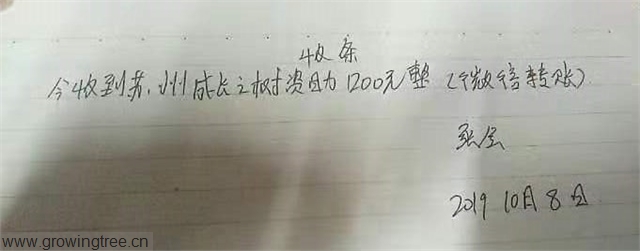 收条
今收到苏州成长之树资助1200元整(微信转账)
2019 10月8日
www.growingtree.cn